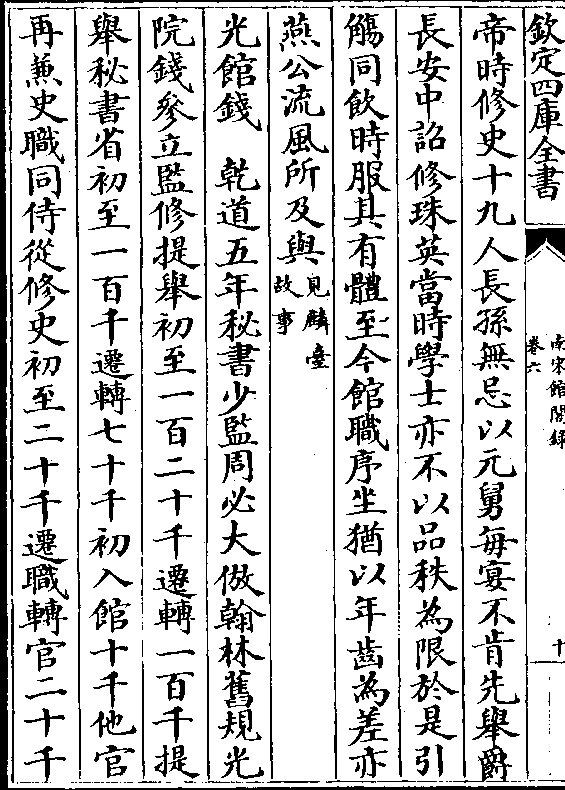 欽定四庫全書
南宋館閣錄
卷六
十
帝時修史十九人長孫無忌以元舅毎宴不肯先舉爵
長安中詔修珠英當時學士亦不以品秩為限於是引
觴同飲時服其有體至今館職序坐猶以年齒為差亦
燕公流風所及與見麟臺故事
光館錢　乾道五年秘書少監周必大倣翰林舊規光
院錢參立監修提舉初至一百二十千遷轉一百千提
舉秘書省初至一百千遷轉七十千初入館十千他官
再兼史職同侍從修史初至二十千遷職轉官二十千